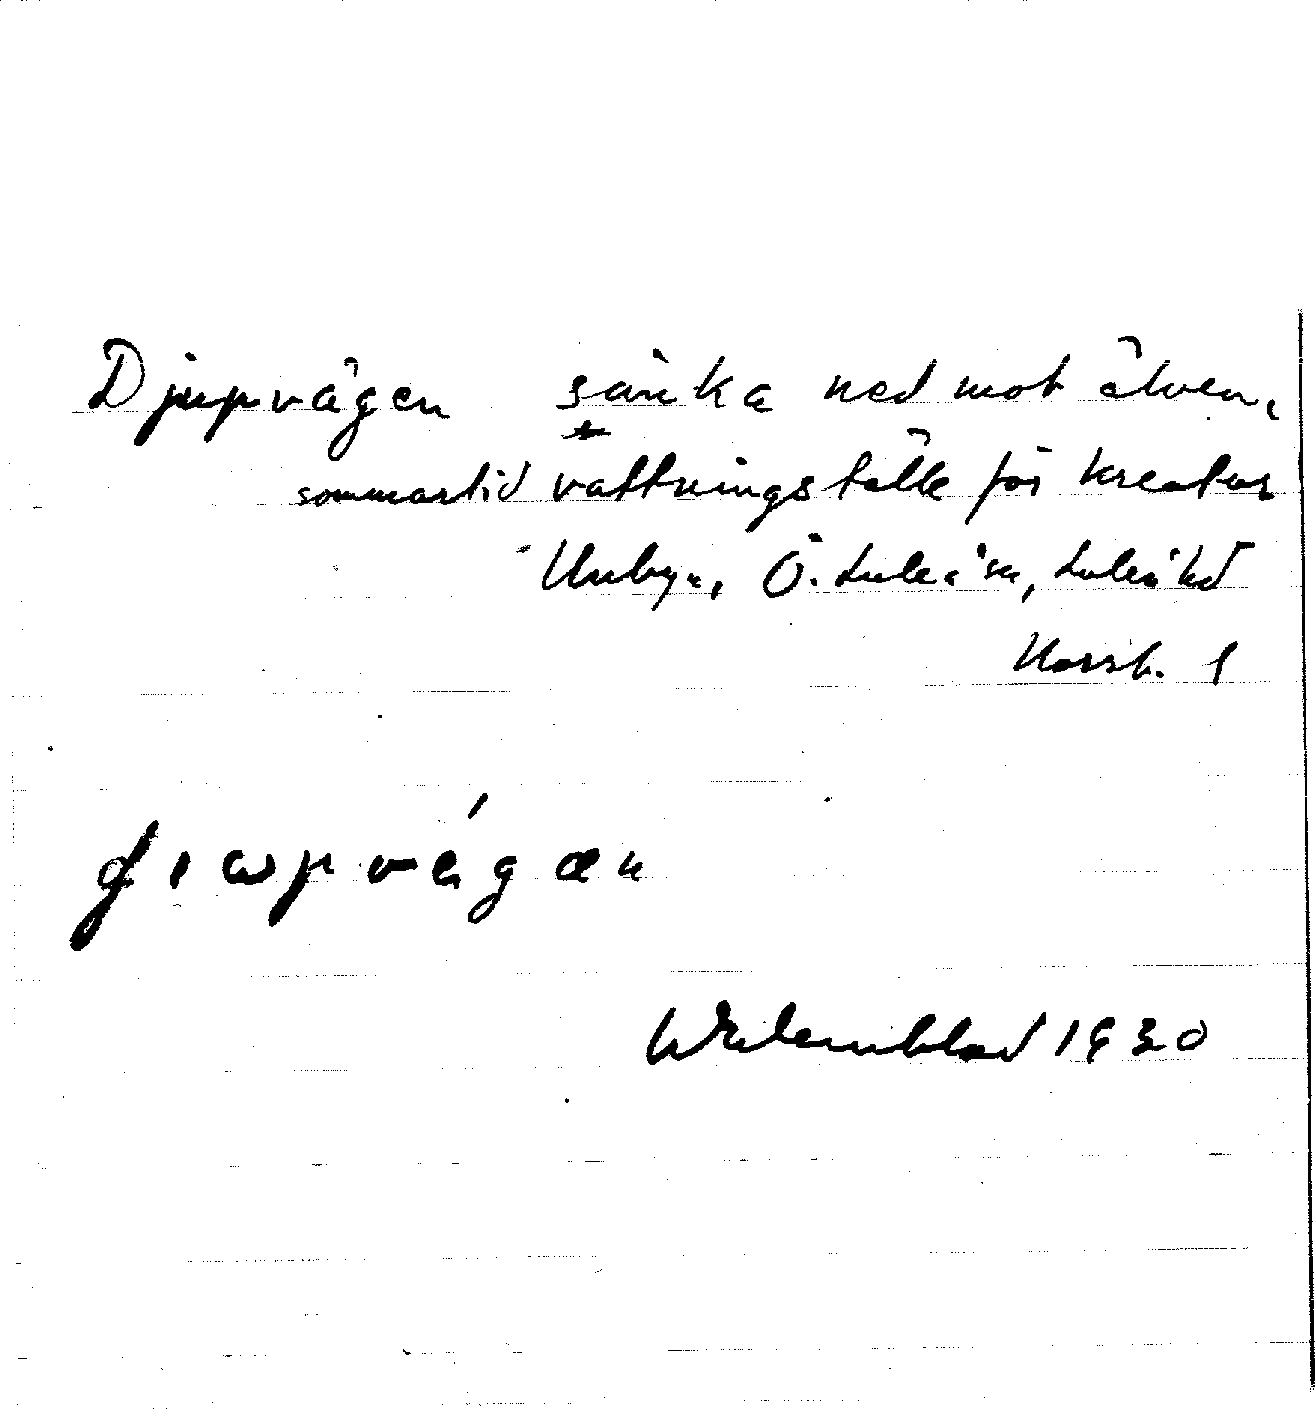 Djupvägen sänka ned mot älven,
sommartid vattningställe för kreatur
Unbyn, Ö. Luleå sn, Luleå hd
Norrb. l
Wälemblad 1930